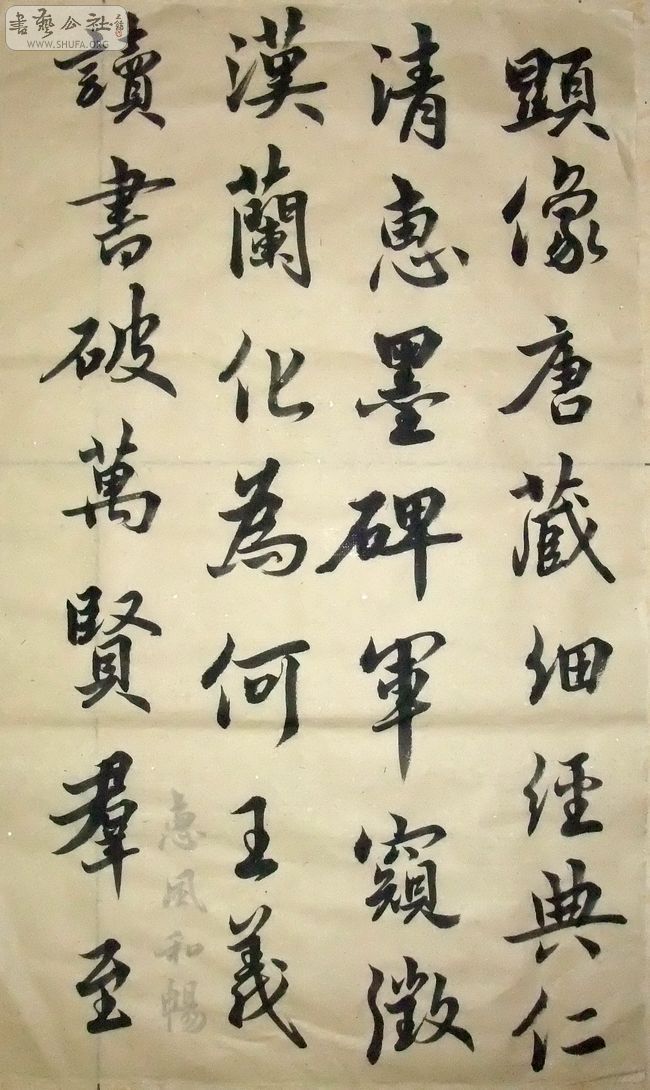 顯像唐藏細經典仁
清惠墨碑軍窺徵
漢蘭化為何王義
讀書破萬賢羣至
惠風和暢
書藝公社
WWW.SHUFA.ORG